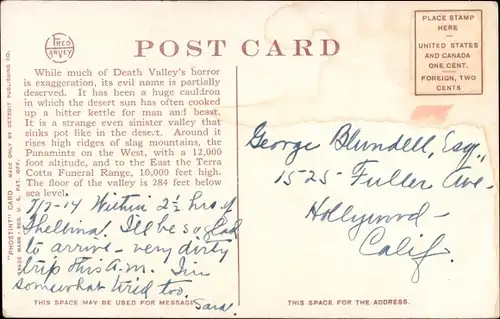 FRED
HARVEY
POST CARD
PLACE STAMP
HERE
UNITED STATES
AND CANADA
ONE CENT.
FOREIGN, TWO
CENTS
While much of Death Valley's horror
is exaggeration, its evil name is partially
deserved. It has been a huge cauldron
in which the desert sun has often cooked
up a bitter kettle for man and beast.
It is a strange even sinister valley that
sinks pot like in the desert. Around it
rises high ridges of slag mountains, the
Panamints on the West, with a 12,000
foot altitude, and to the East the Terra
Cotta Funeral Range, 10,000 feet high.
The floor of the valley is 284 feet below
sea level.
7/2-14 Within 2½ hrs. of
Shelbina. I'll be so glad
to arrive - very dirty
trip this A.M. I'm
somewhat tired too.
Sara.
THIS SPACE MAY BE USED FOR MESSAGE
"PHOSTINT" CARD MADE ONLY BY DETROIT PUBLISHING CO.
TRADE MARK - REG. U. S. PAT. OFF.
George Blundell, Esq.,
1525- Fuller Ave-
Hollywood-
Calif.
THIS SPACE IS FOR THE ADDRESS.